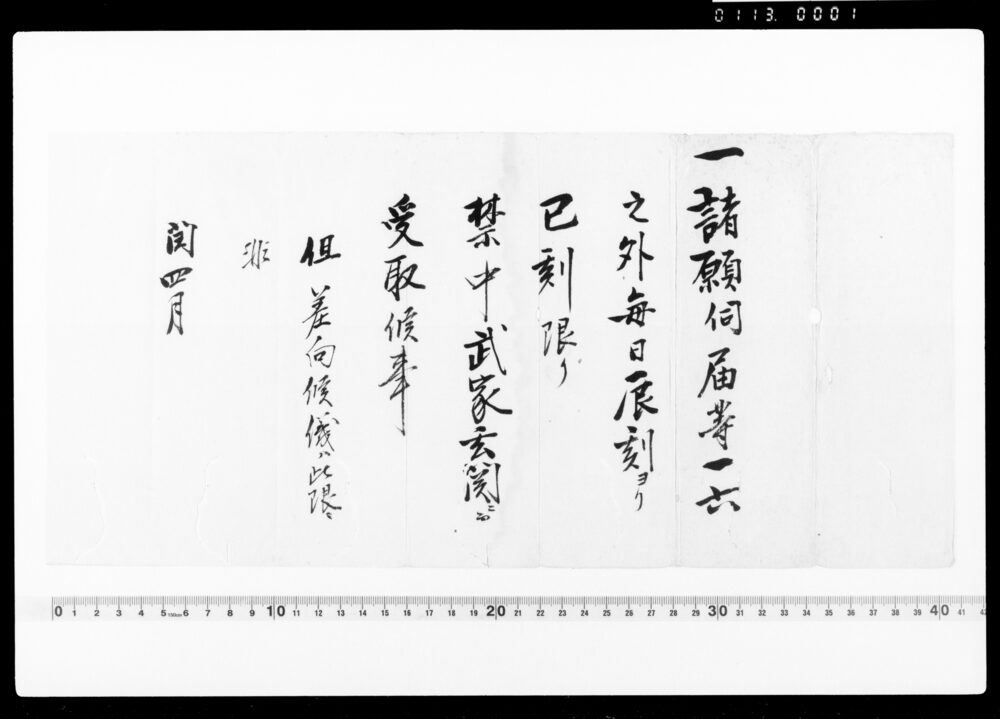 0113. 0001
一諸願伺届等一六
之外毎日辰刻ヨリ
巳刻限リ
禁中武家玄関ニ而
受取候事
但差向候儀ハ此限ニ
非
閏四月
0 1 2 3 4 5 150mm 6 7 8 9 10 11 12 13 14 15 16 17 18 19 20 21 22 23 24 25 26 27 28 29 30 31 32 33 34 35 36 37 38 39 40 41